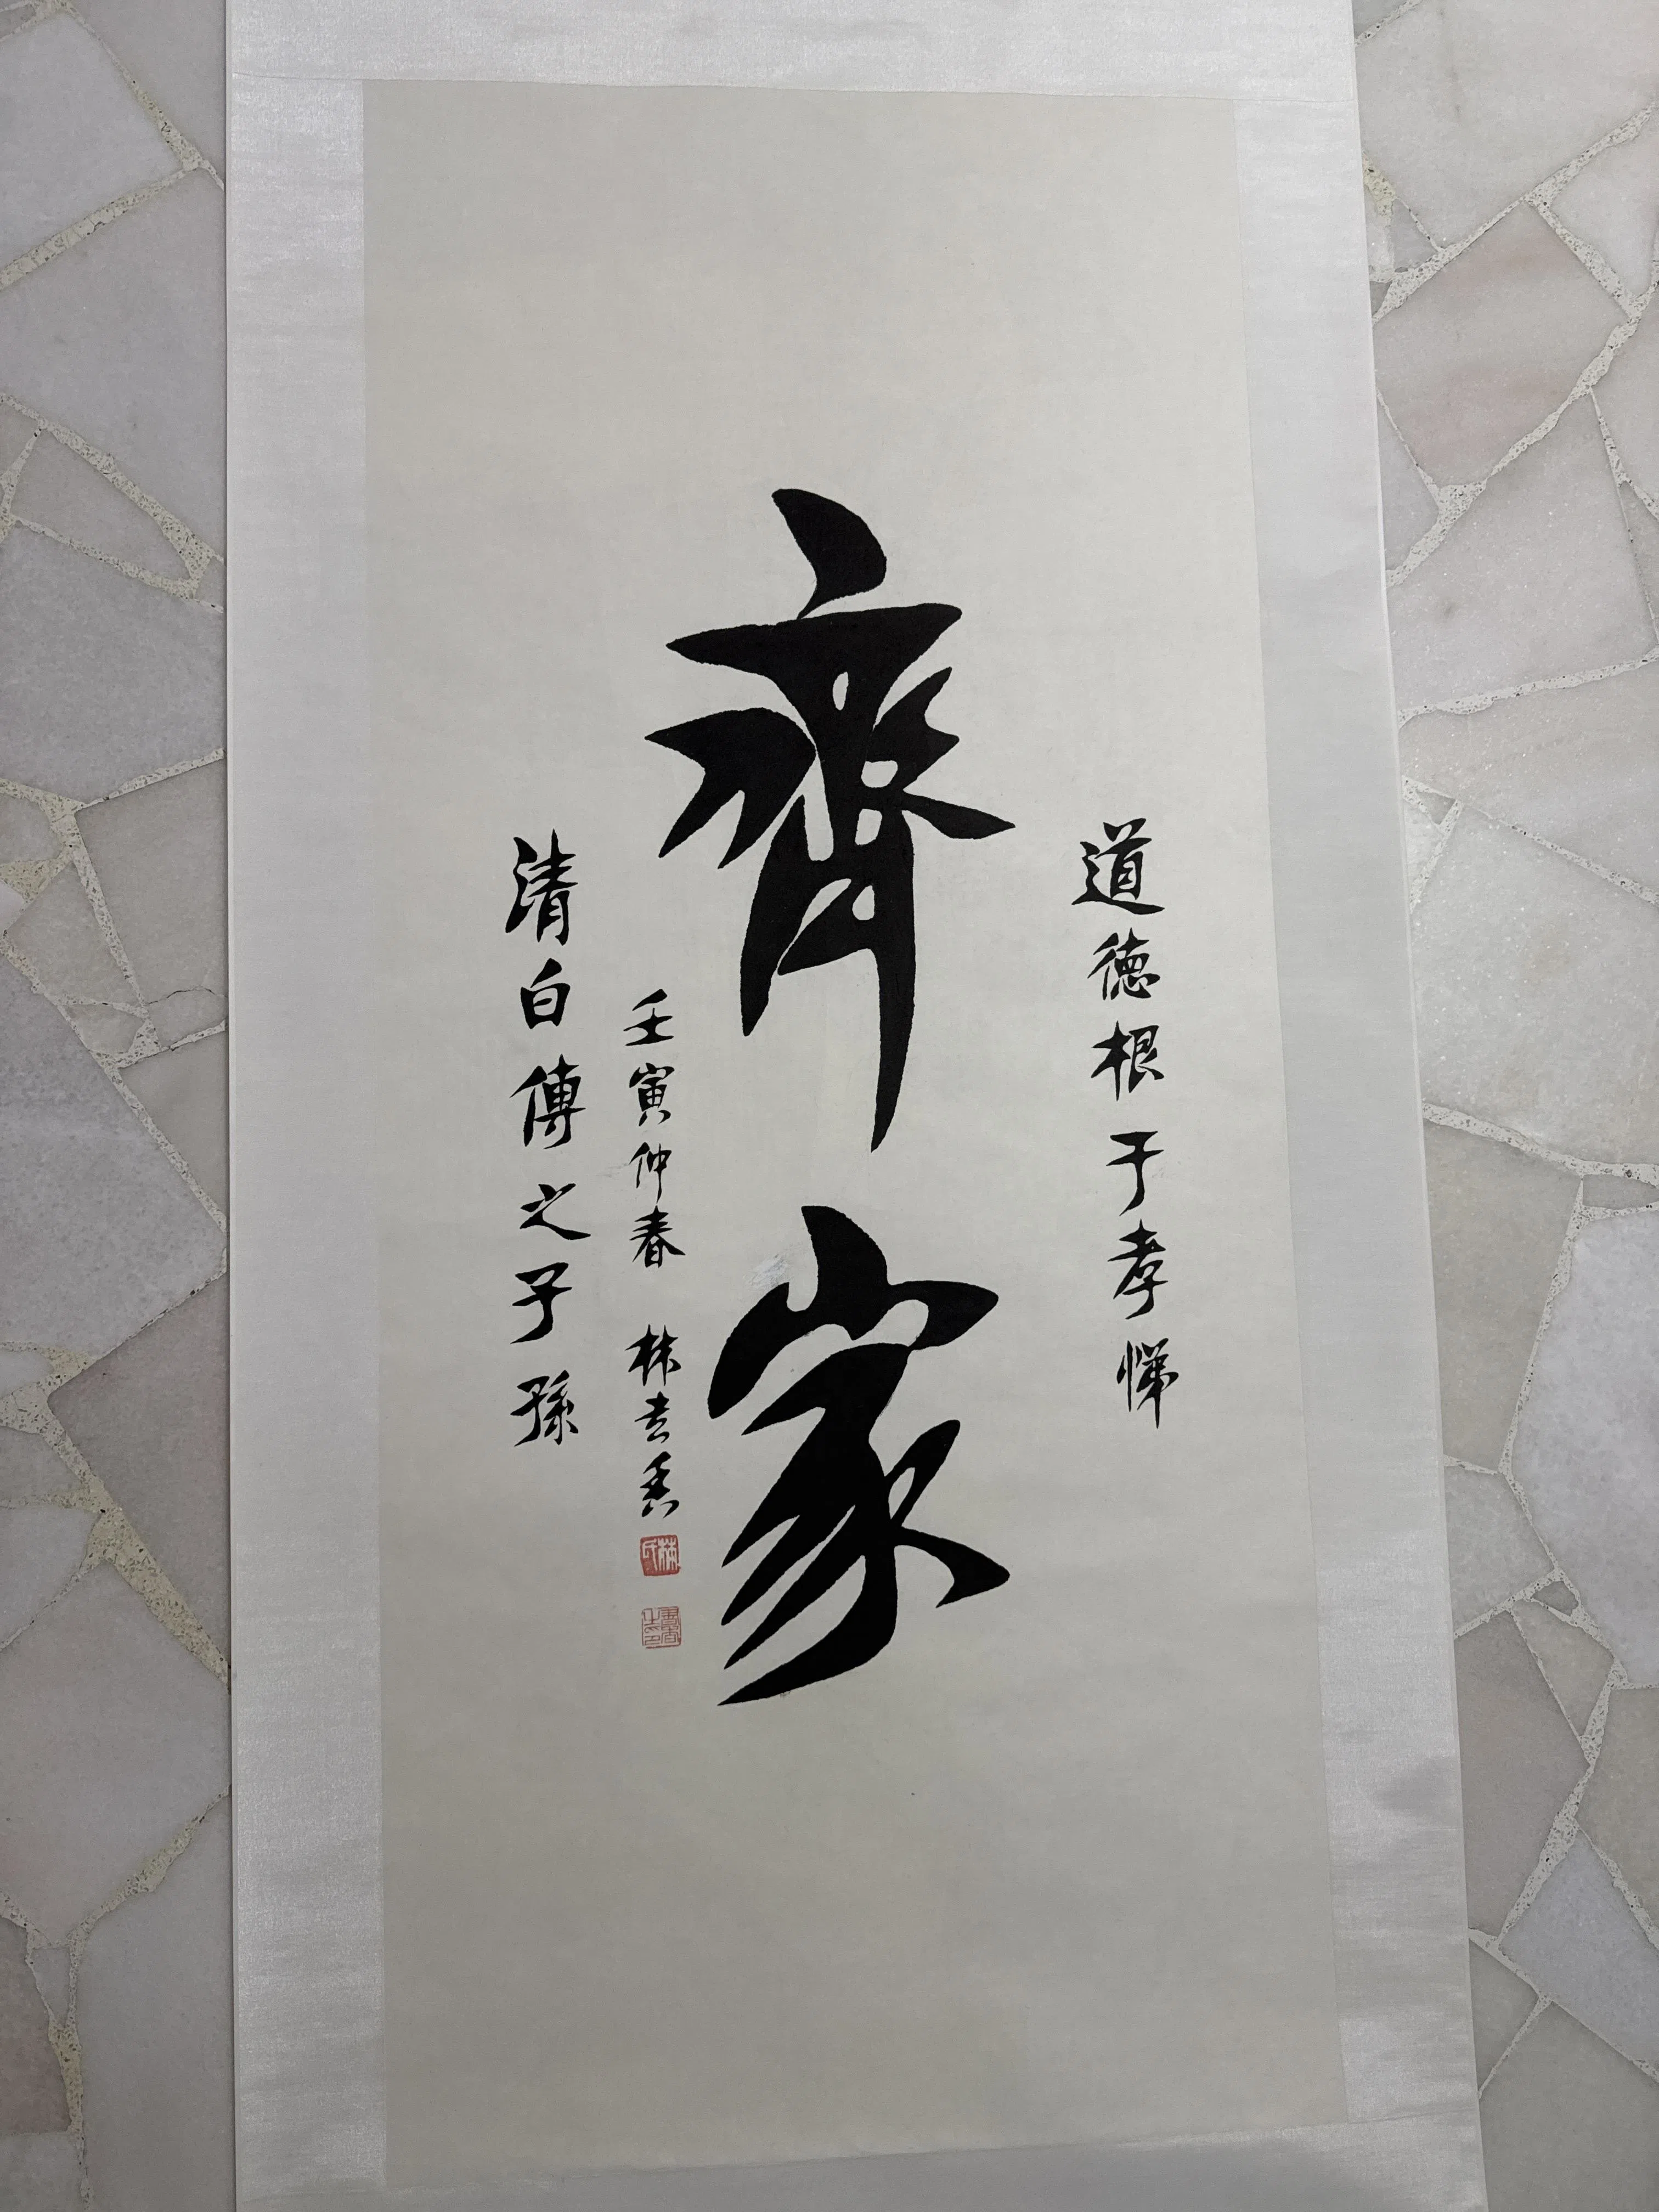 道德根于孝悌
齊家
壬寅仲春 林去愚
清白傳之子孫
林氏